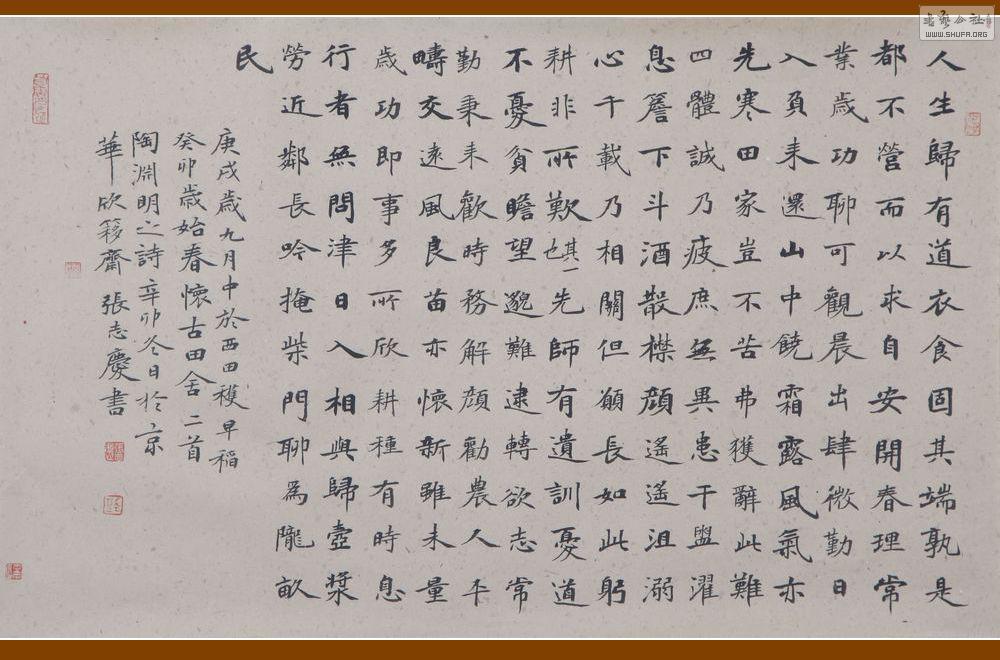 人生歸有道衣食固其端孰是
都不營而以求自安開春理常
業歲功聊可觀晨出肆微勤日
入負耒還山中饒霜露風氣亦
先寒田家豈不苦弗獲辭此難
四體誠乃疲庶無異患干盥濯
息簷下斗酒散襟顏遙遙沮溺
心千載乃相關但願長如此躬
耕非所歎也其一先師有遺訓憂道
不憂貧瞻望邈難逮轉欲志常
勤秉耒歡時務解顏勸農人平
疇交遠風良苗亦懷新雖未量
歲功即事多所欣耕種有時息
行者無問津日入相與歸壺漿
勞近鄰長吟掩柴門聊為隴畝
民
庚戌歲九月中於西田穫早稻
癸卯歲始春懷古田舍二首
陶淵明之詩辛卯冬日於京
華欣簃齋張志慶書
WWW.SHUFA.ORG